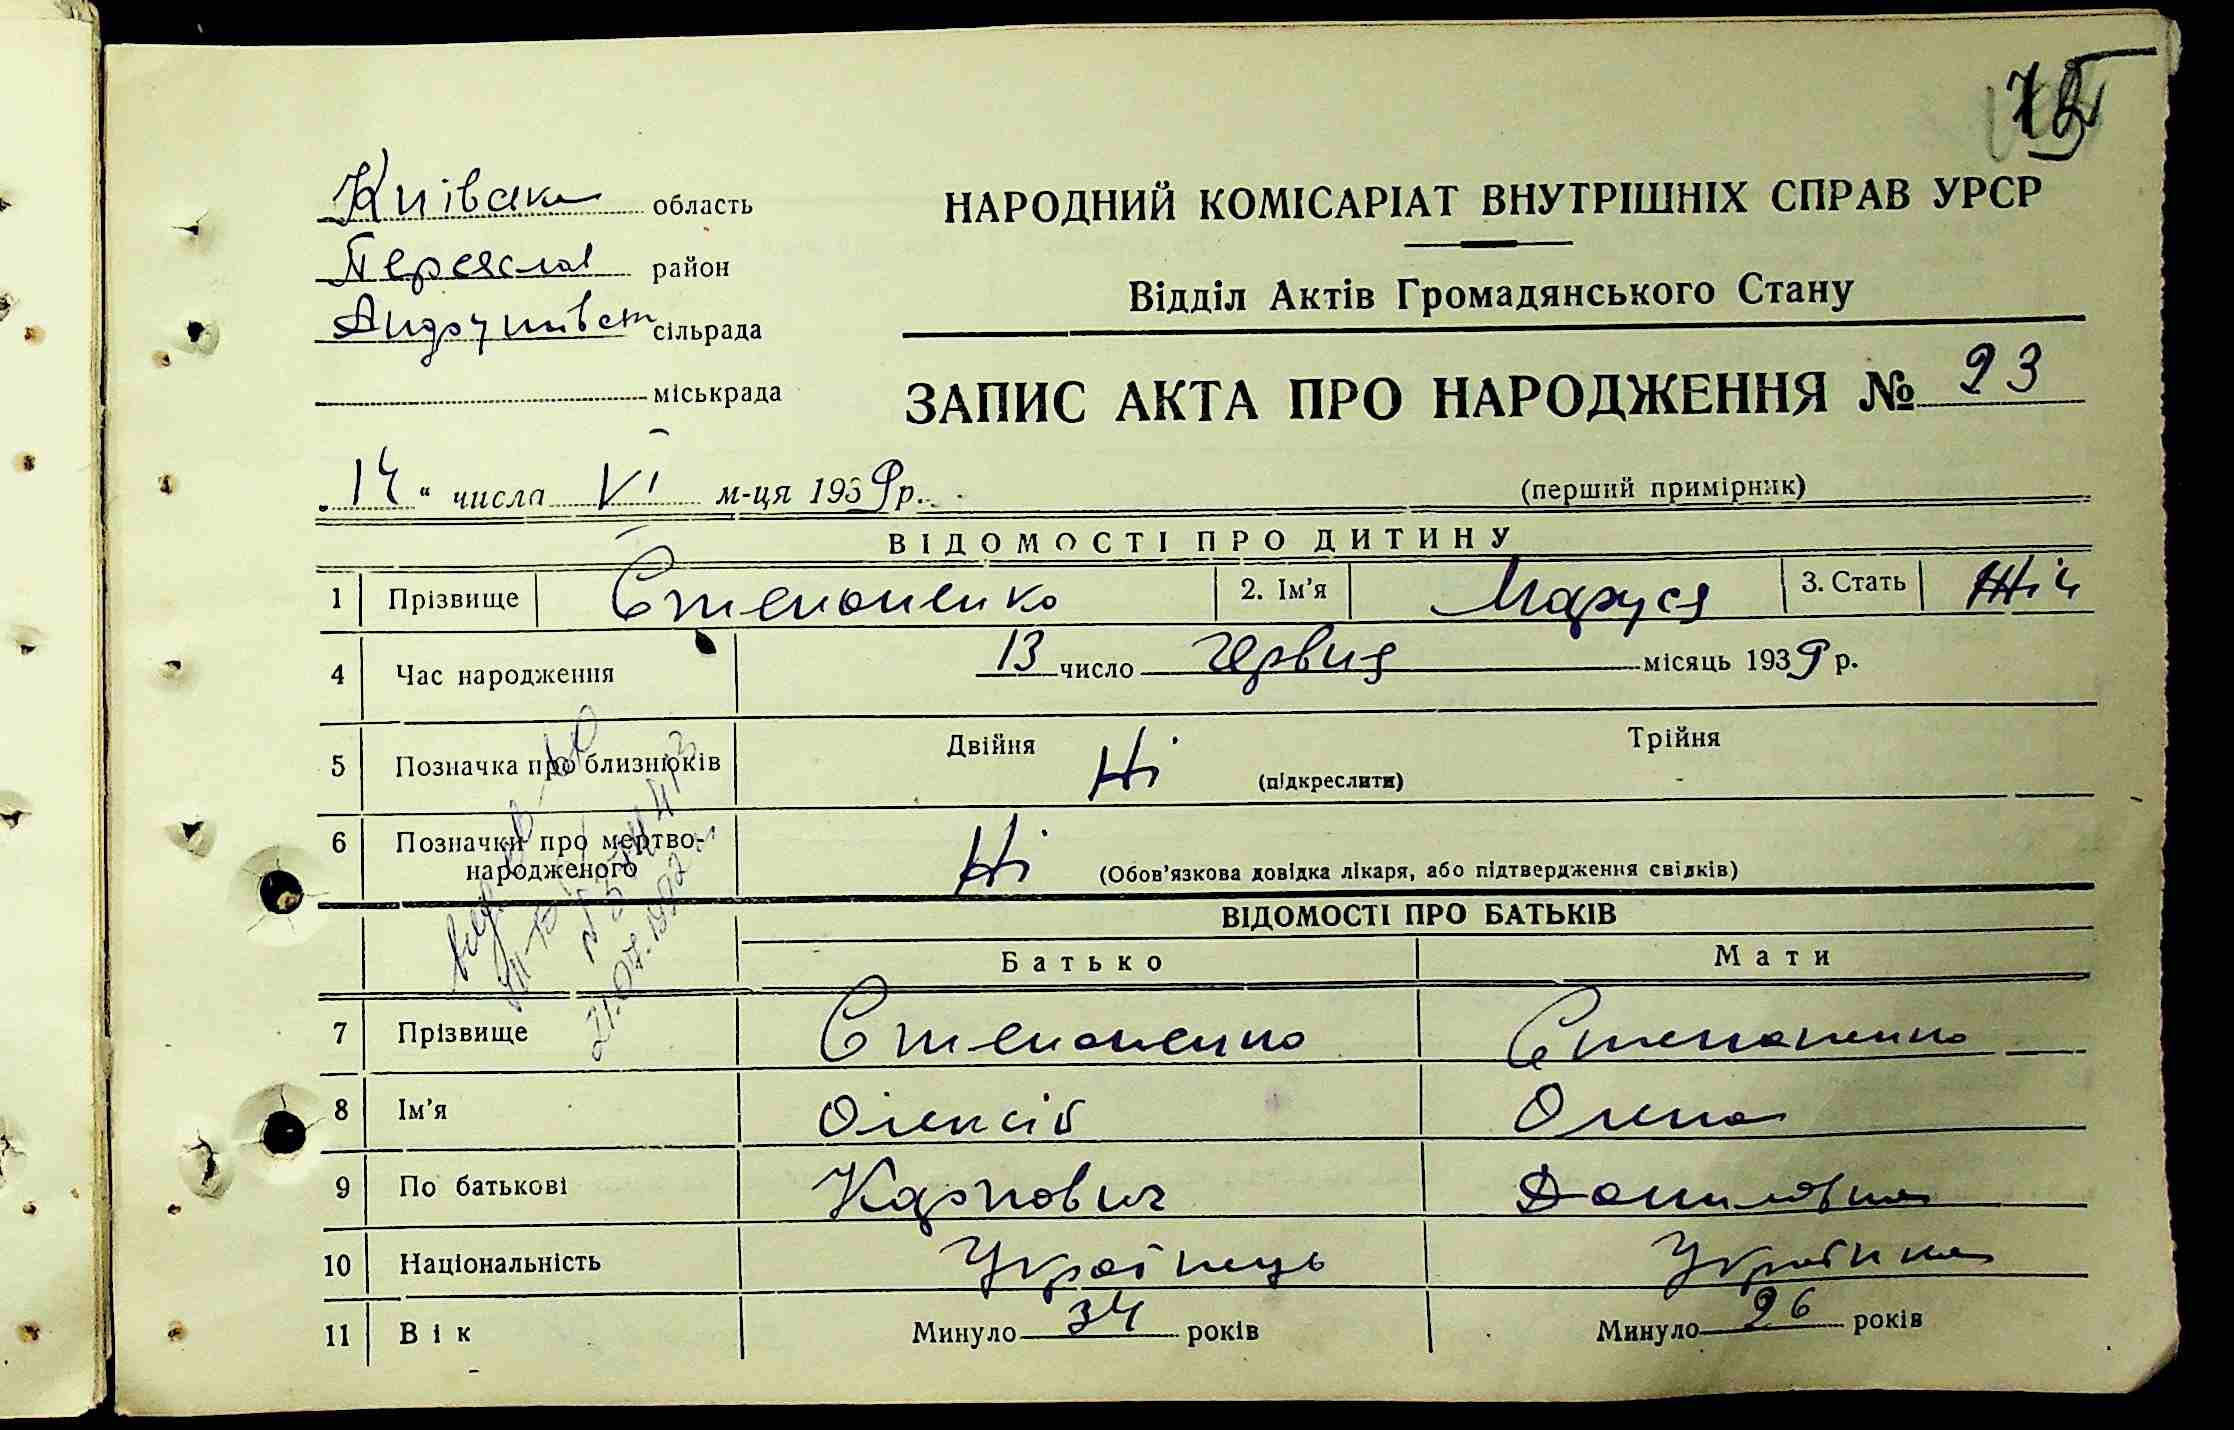 75
Київська область
Переяслав район
Андрушівськ сільрада
міськрада
НАРОДНИЙ КОМІСАРІАТ ВНУТРІШНІХ СПРАВ УРСР
Відділ Актів Громадянського Стану
ЗАПИС АКТА ПРО НАРОДЖЕННЯ № 23
„14“ числа VI м-ця 1939 р.
(перший примірник)
ВІДОМОСТІ ПРО ДИТИНУ
1 Прізвище Степоненко 2. Ім'я Маруся 3. Стать Жіч
4 Час народження 13 число червня місяць 1939 р.
5 Позначка про близнюків Двійня Ні (підкреслити) Трійня
6 Позначки про мертво-
народженого Ні (Обов'язкова довідка лікаря, або підтвердження свідків)
21.07.1992
ВІДОМОСТІ ПРО БАТЬКІВ
Батько Мати
7 Прізвище Степоненко Степаненко
8 Ім'я Олексій Олена
9 По батькові Карпович Даниловна
10 Національність Українець Українка
11 Вік Минуло 34 років Минуло 26 років